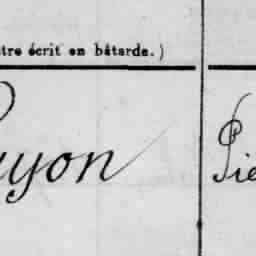 être écrit en bâtarde.)
uyon Pie